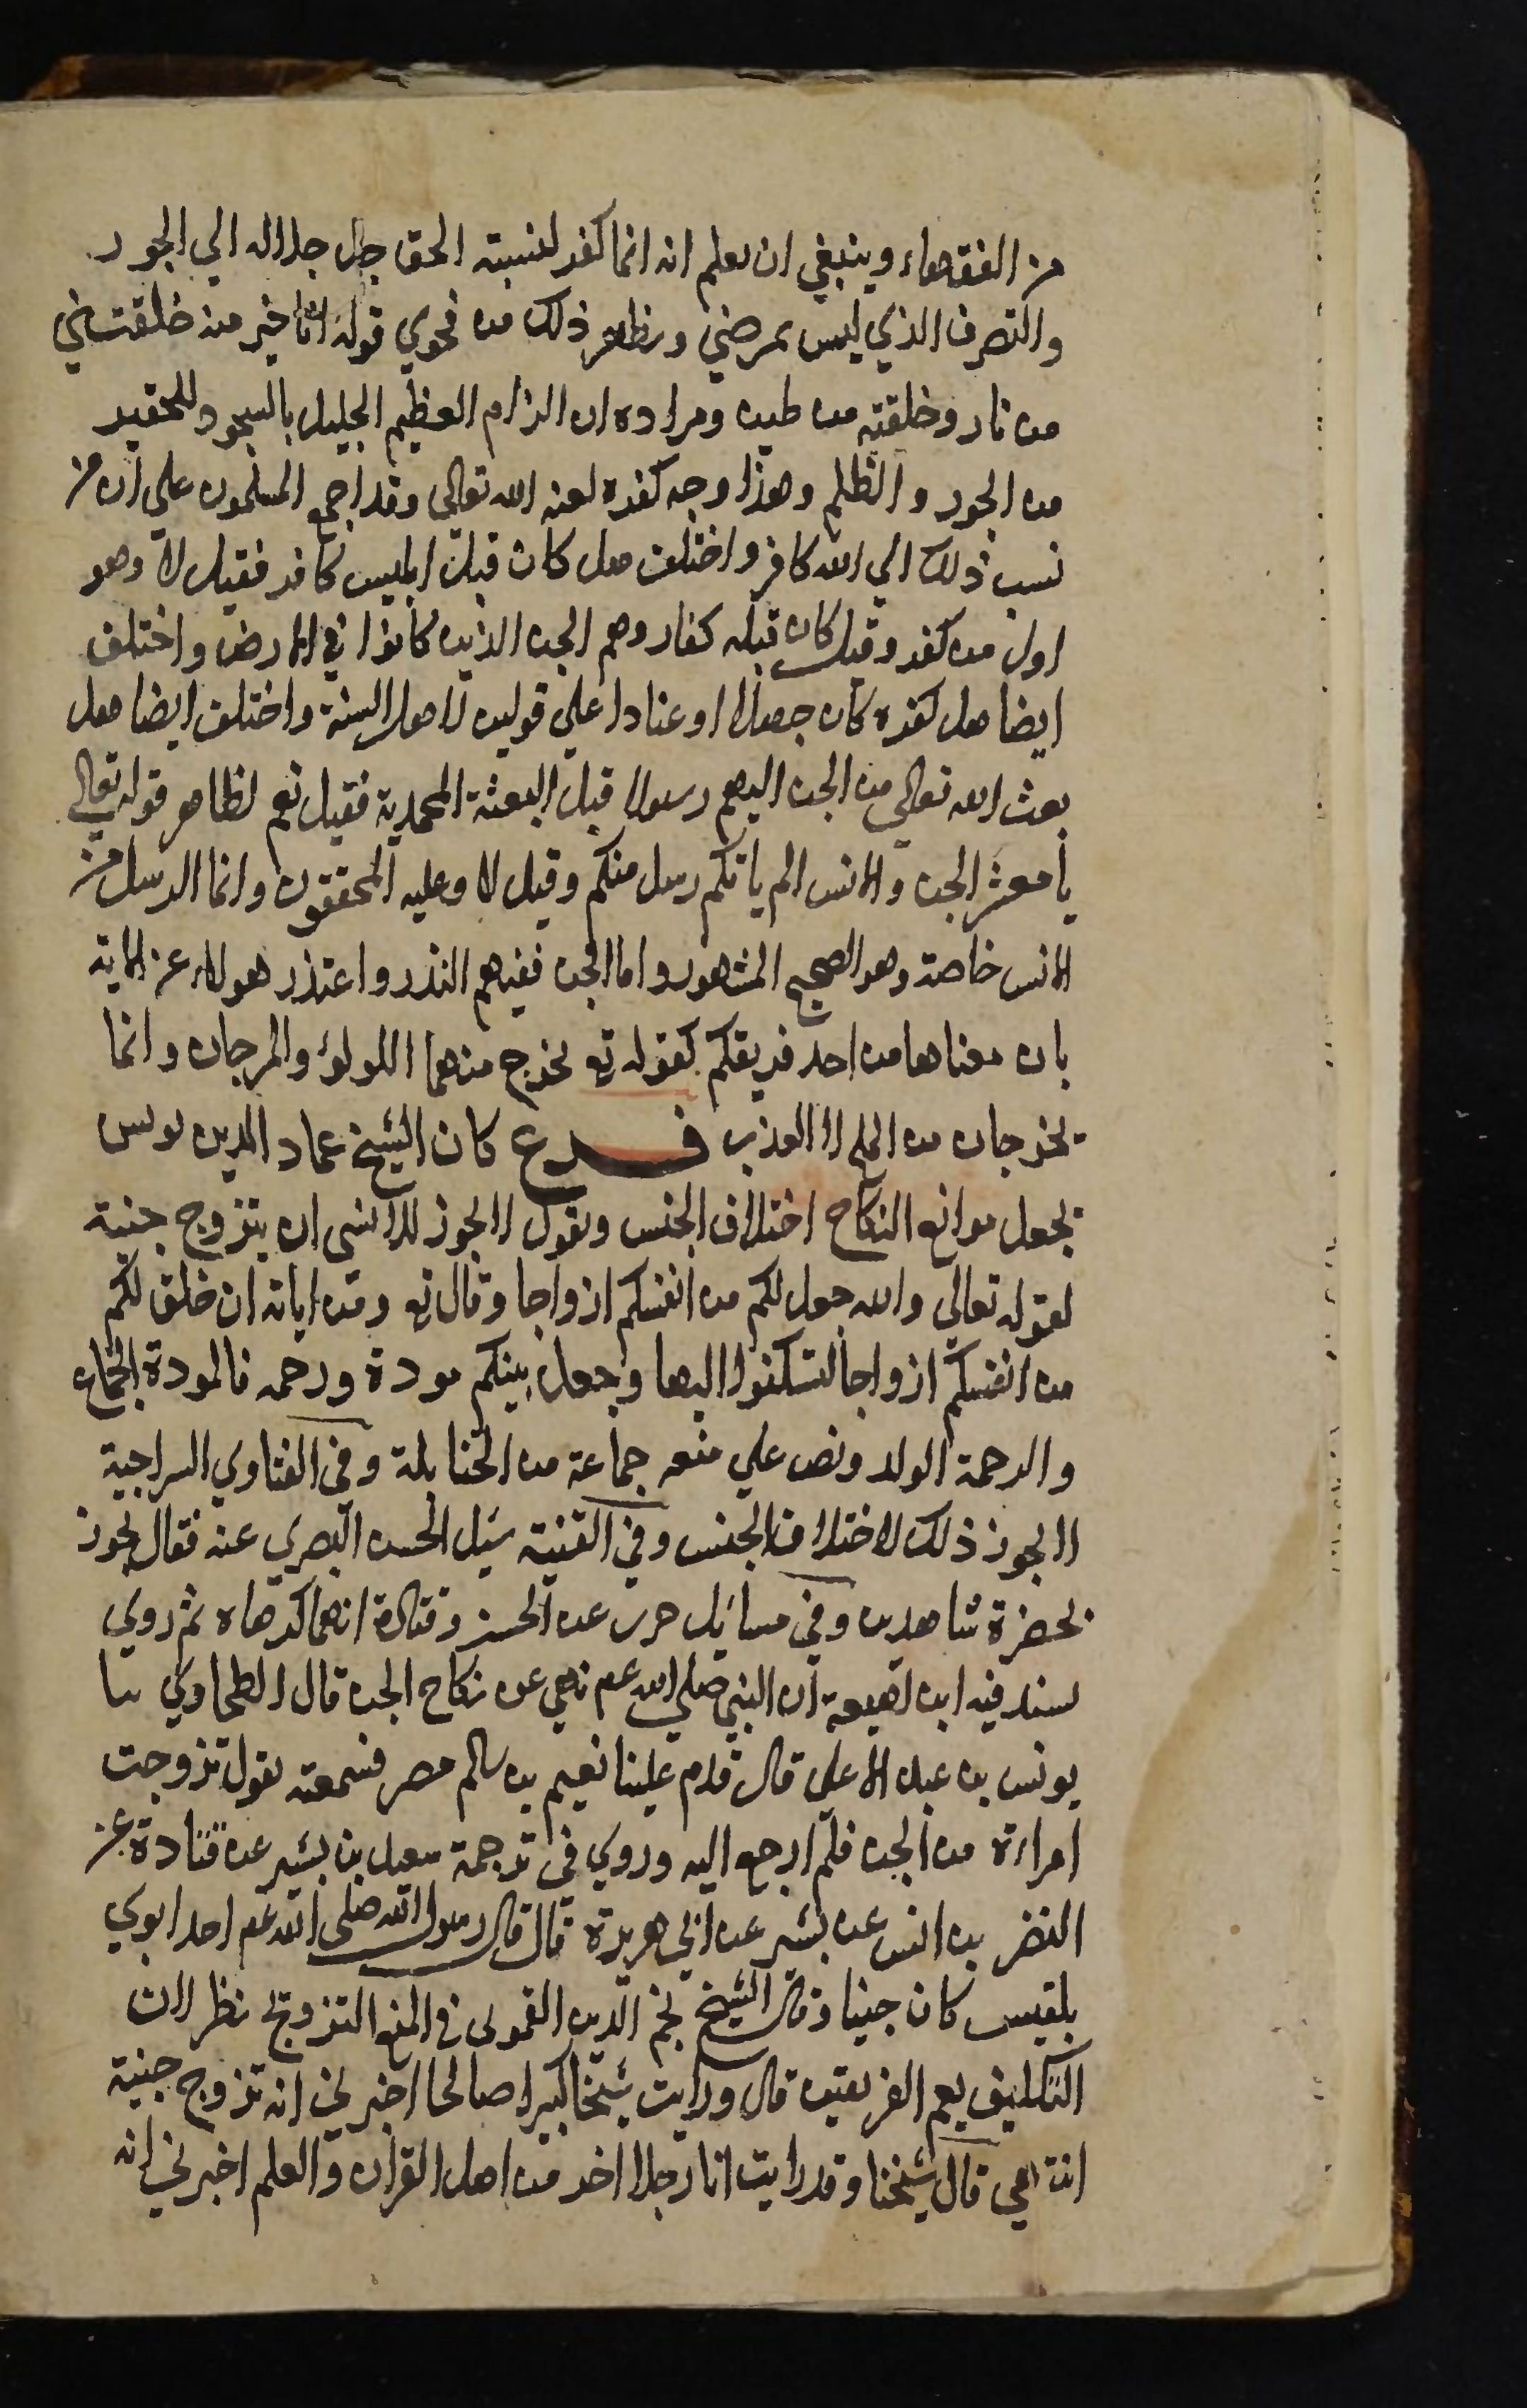 من الفقهاء وينبغي ان يعلم انه انما كفر لنسبته الحق جل جلاله الي الجور
والتصرف الذي ليس بمرضي ويظهر ذلك من فحوي قوله انا خير منه خلقتني
من نار وخلقته من طين ومراده ان الزام العظيم الجليل بالسجود للحقير
من الجور والظلم وهذا وجه كفره لعنه الله تعالى وقد اجمع المسلمون علي ان من
نسب ذلك الي الله كافر واختلف هل كان قبل ابليس كافر فقيل لا وهو
اول من كفر وقيل كان قبله كفار وهم الجن الذين كانوا في الارض واختلف
ايضا هل كفره كان جهلا او عنادا علي قولين لاهل السنة واختلف ايضا هل
بعث الله تعالي من الجن اليهم رسولا قبل البعثة المحمدية فقيل نعم لظاهر قوله تعالي
يا معشر الجن والانس الم ياتكم رسل منكم وقيل لا وعليه المحققون وانما الرسل من
الانس خاصة وهو الصحيح المشهور واما الجن ففيهم النذر واعتذر هولاء عن الاية
بان معناها من احد فريقكم كقوله تع يخرج منهما اللولؤ والمرجان وانما
يخرجان من الملح لا العذب فرع كان الشيخ عماد الدين يونس
يجعل موانع النكاح اختلاف الجنس ويقول لا يجوز للانسي ان يتزوج جنية
لقوله تعالي والله جعل لكم من انفسكم ازواجا وقال تع ومن اياته ان خلق لكم
من انفسكم ازواجا لتسكنوا اليها وجعل بينكم مودة ورحمه فالمودة الجماع
والرحمة الولد ونص علي منعه جماعة من الحنابلة وفي الفتاوي السراجية
لا يجوز ذلك لاختلاف الجنس وفي القنية سئل الحسن البصري عنه فقال يجوز
بحضرة شاهدين وفي مسائل حرب عن الحسن وقتادة انهما كرهاه ثم روي
بسند فيه ابن لهيعة ان النبي صلي الله عم نهي عن نكاح الجن قال الطحاوي ثنا
يونس بن عبد الاعلي قال قدم علينا نعيم بن سالم مصر فسمعته يقول تزوجت
امراة من الجن فلم ارجع اليه وروي في ترجمة سعيد بن بشير عن قتادة عن
النضر بن انس عن بشير عن ابي هريرة قال قال رسول الله صلى الله عم احد ابوي
بلقيس كان جنيا وقال الشيخ نجم الدين القمولى في المنع التزويج نظر لان
التكليف يعم الفريقين قال ورايت شيخا كبيرا صالحا اخبرني انه تزوج جنية
انتهي قال شيخنا وقد رايت انا رجلا اخر من اهل القران والعلم اخبرني انه